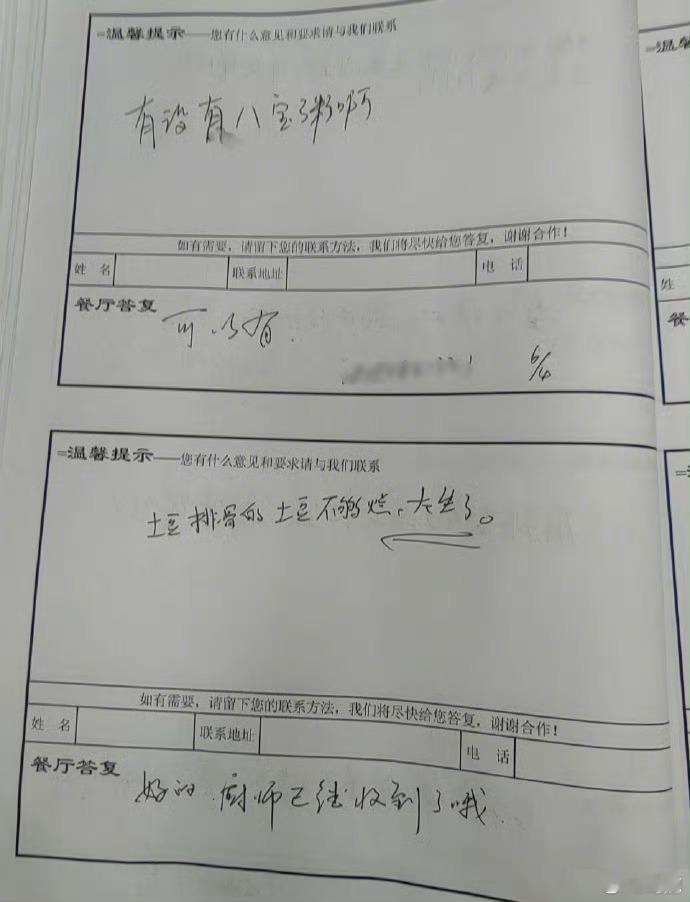 =温馨提示——您有什么意见和要求请与我们联系
有没有八宝粥啊
如有需要，请留下您的联系方法，我们将尽快给您答复，谢谢合作！
姓 名 联系地址 电 话
餐厅答复
可以有.
6/4
=温馨提示——您有什么意见和要求请与我们联系
土豆排骨的土豆不够烂，太生了。
如有需要，请留下您的联系方法，我们将尽快给您答复，谢谢合作！
姓 名 联系地址 电 话
餐厅答复
好的 厨师已经收到了哦
=温馨
姓
餐
=温
姓
餐